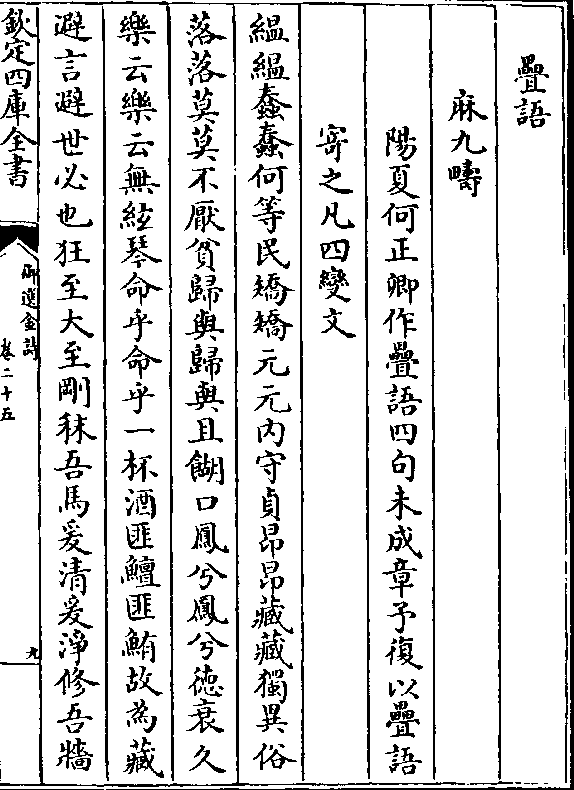 疊語
麻九疇
陽夏何正卿作疊語四句未成章予復以疊語
寄之凡四變文
縕縕蠢蠢何等民矯矯元元内守貞昂昂藏藏獨異俗
落落莫莫不厭貧歸與歸與且餬口鳳兮鳳兮徳衰久
樂云樂云無絃琴命乎命乎一杯酒匪鱣匪鮪故為藏
避言避世必也狂至大至剛秣吾馬爰清爰淨修吾牆
欽定四庫全書
御選金詩
卷二十五
九